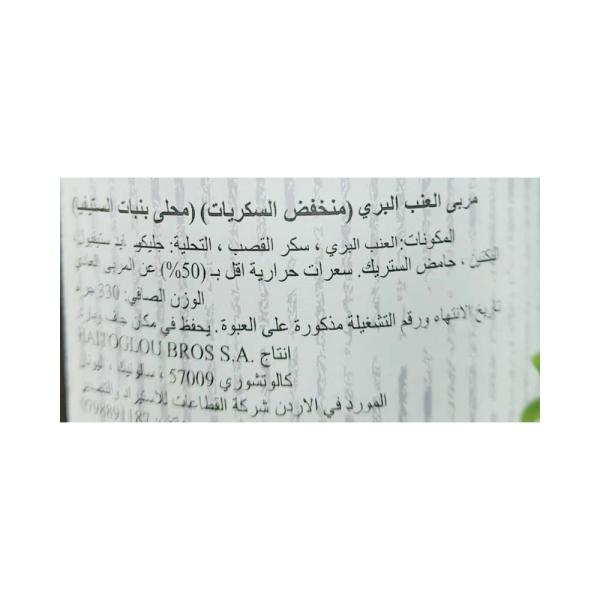 مربى العنب البري (منخفض السكريات) (محلى بنبات الستيفيا)
المكونات: العنب البري ، سكر القصب ، التحلية: جليكو
البكتين ، حامض الستريك. سعرات حرارية اقل بـ (50%) عن المربى العادي
الوزن الصافي: 330 جرام
تاريخ الانتهاء ورقم التشغيلة مذكورة على العبوة . يحفظ في مكان جاف
انتاج .HAITOGLOU BROS S.A
كالوتشوري 57009 ، سلونيك ، اليونان
المورد في الاردن شركة القطاعات للاستيراد والتصدير